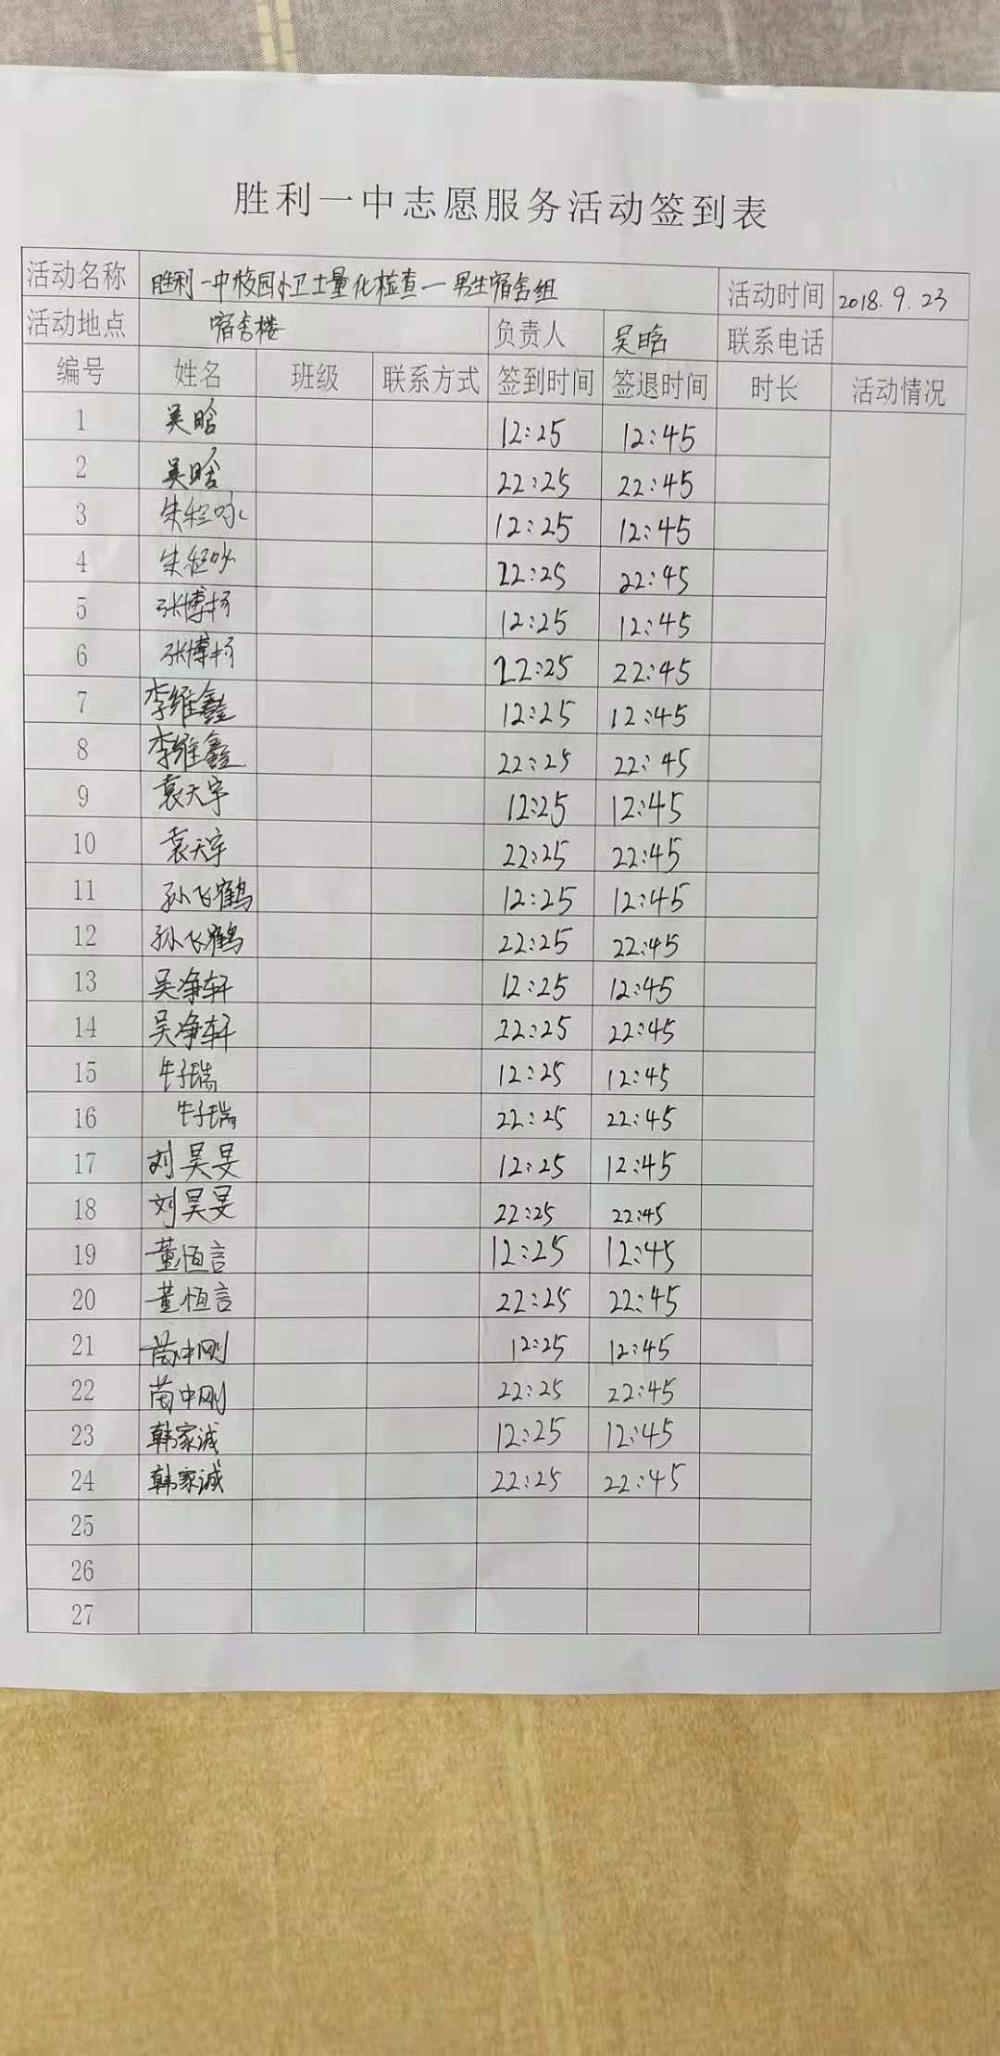 胜利一中志愿服务活动签到表
活动名称 胜利一中校园小卫士量化检查—男生宿舍组 活动时间 2018.9.23
活动地点 宿舍楼 负责人 吴晗 联系电话
编号 姓名 班级 联系方式 签到时间 签退时间 时长 活动情况
1 吴晗 12:25 12:45
2 吴晗 22:25 22:45
3 12:25 12:45
4 22:25 22:45
5 张博扬 12:25 12:45
6 张博扬 22:25 22:45
7 李维鑫 12:25 12:45
8 李维鑫 22:25 22:45
9 袁天宇 12:25 12:45
10 袁天宇 22:25 22:45
11 孙飞鹤 12:25 12:45
12 孙飞鹤 22:25 22:45
13 吴净轩 12:25 12:45
14 吴净轩 22:25 22:45
15 牛子瑞 12:25 12:45
16 牛子瑞 22:25 22:45
17 刘昊旻 12:25 12:45
18 刘昊旻 22:25 22:45
19 董恒言 12:25 12:45
20 董恒言 22:25 22:45
21 苗中刚 12:25 12:45
22 苗中刚 22:25 22:45
23 韩家诚 12:25 12:45
24 韩家诚 22:25 22:45
25
26
27